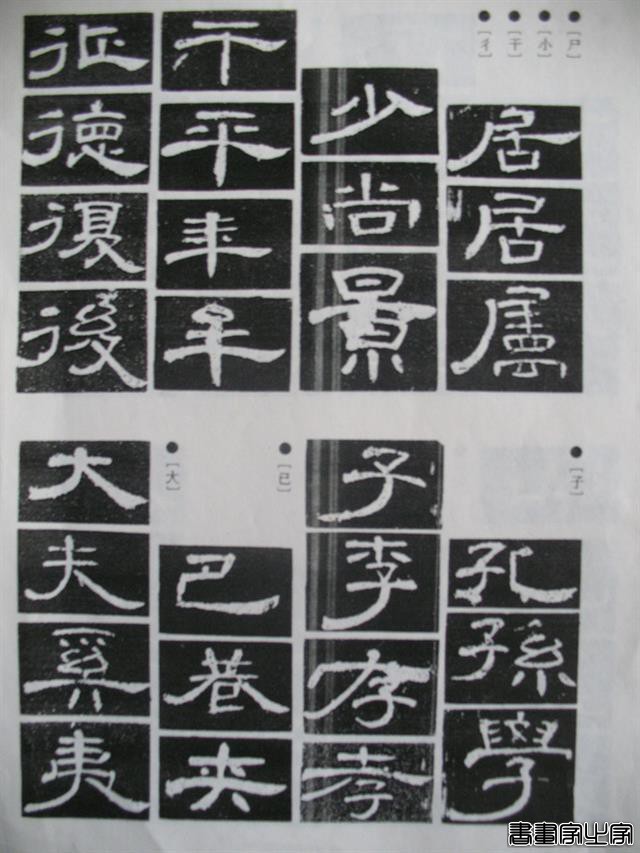 [尸]
[小]
[干]
[彳]
居居
少尚景
干平年年
征德復後
[子]
孔孫學
子李存孝
[已]
巳巷夾
[大]
大夫奚夷
書畫家之家